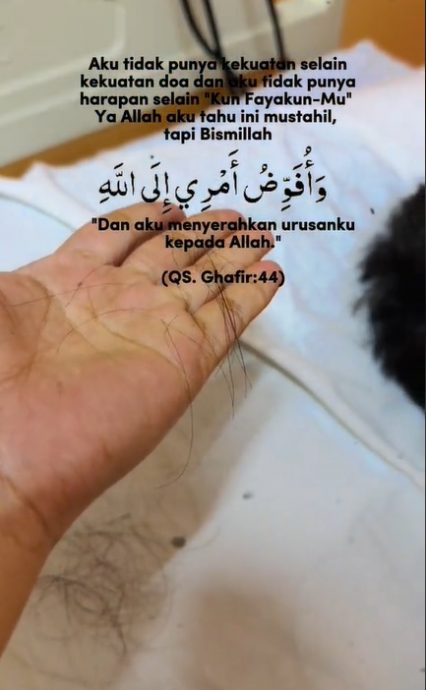 Aku tidak punya kekuatan selain
kekuatan doa dan aku tidak punya
harapan selain "Kun Fayakun-Mu"
Ya Allah aku tahu ini mustahil,
tapi Bismillah
وَأُفَوِّضُ أَمْرِي إِلَى اللَّهِ
"Dan aku menyerahkan urusanku
kepada Allah."
(QS. Ghafir:44)